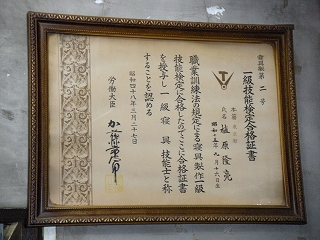 第二号
一級技能検定合格証書
本籍
氏名 塩原隆亮
昭和
年九月十六日生
職業訓練法の規定による寝具製作一級
技能検定に合格したのでここに合格証書
を授与し一級寝具技能士と称
することを認める
昭和四十八年三月二十七日
労働大臣
加藤常太郎